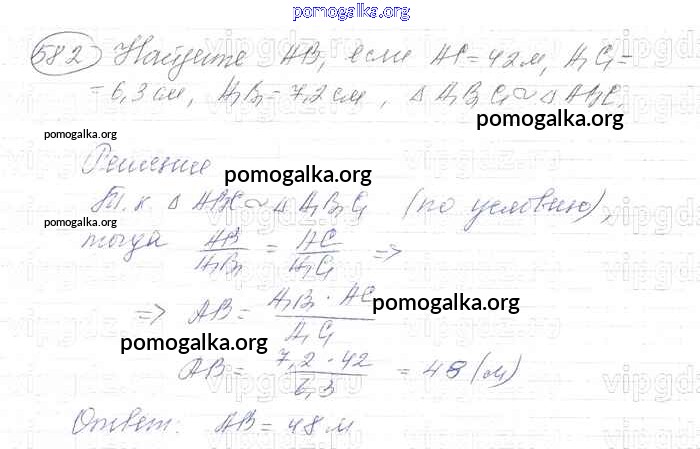 pomogalka.org
582 Найдите AB, если AC = 42 м, A₁C₁ =
= 6,3 см, A₁B₁ = 7,2 см, △ A₁B₁C₁ ~ △ ABC.
pomogalka.org
pomogalka.org
Решение
pomogalka.org
Т.к. △ ABC ~ △ A₁B₁C₁ (по условию),
pomogalka.org
тогда AB/A₁B₁ = AC/A₁C₁ =>
=> AB = A₁B₁ · AC/A₁C₁
pomogalka.org
pomogalka.org
AB = 7,2 · 42/6,3 = 48 (м)
Ответ: AB = 48 м